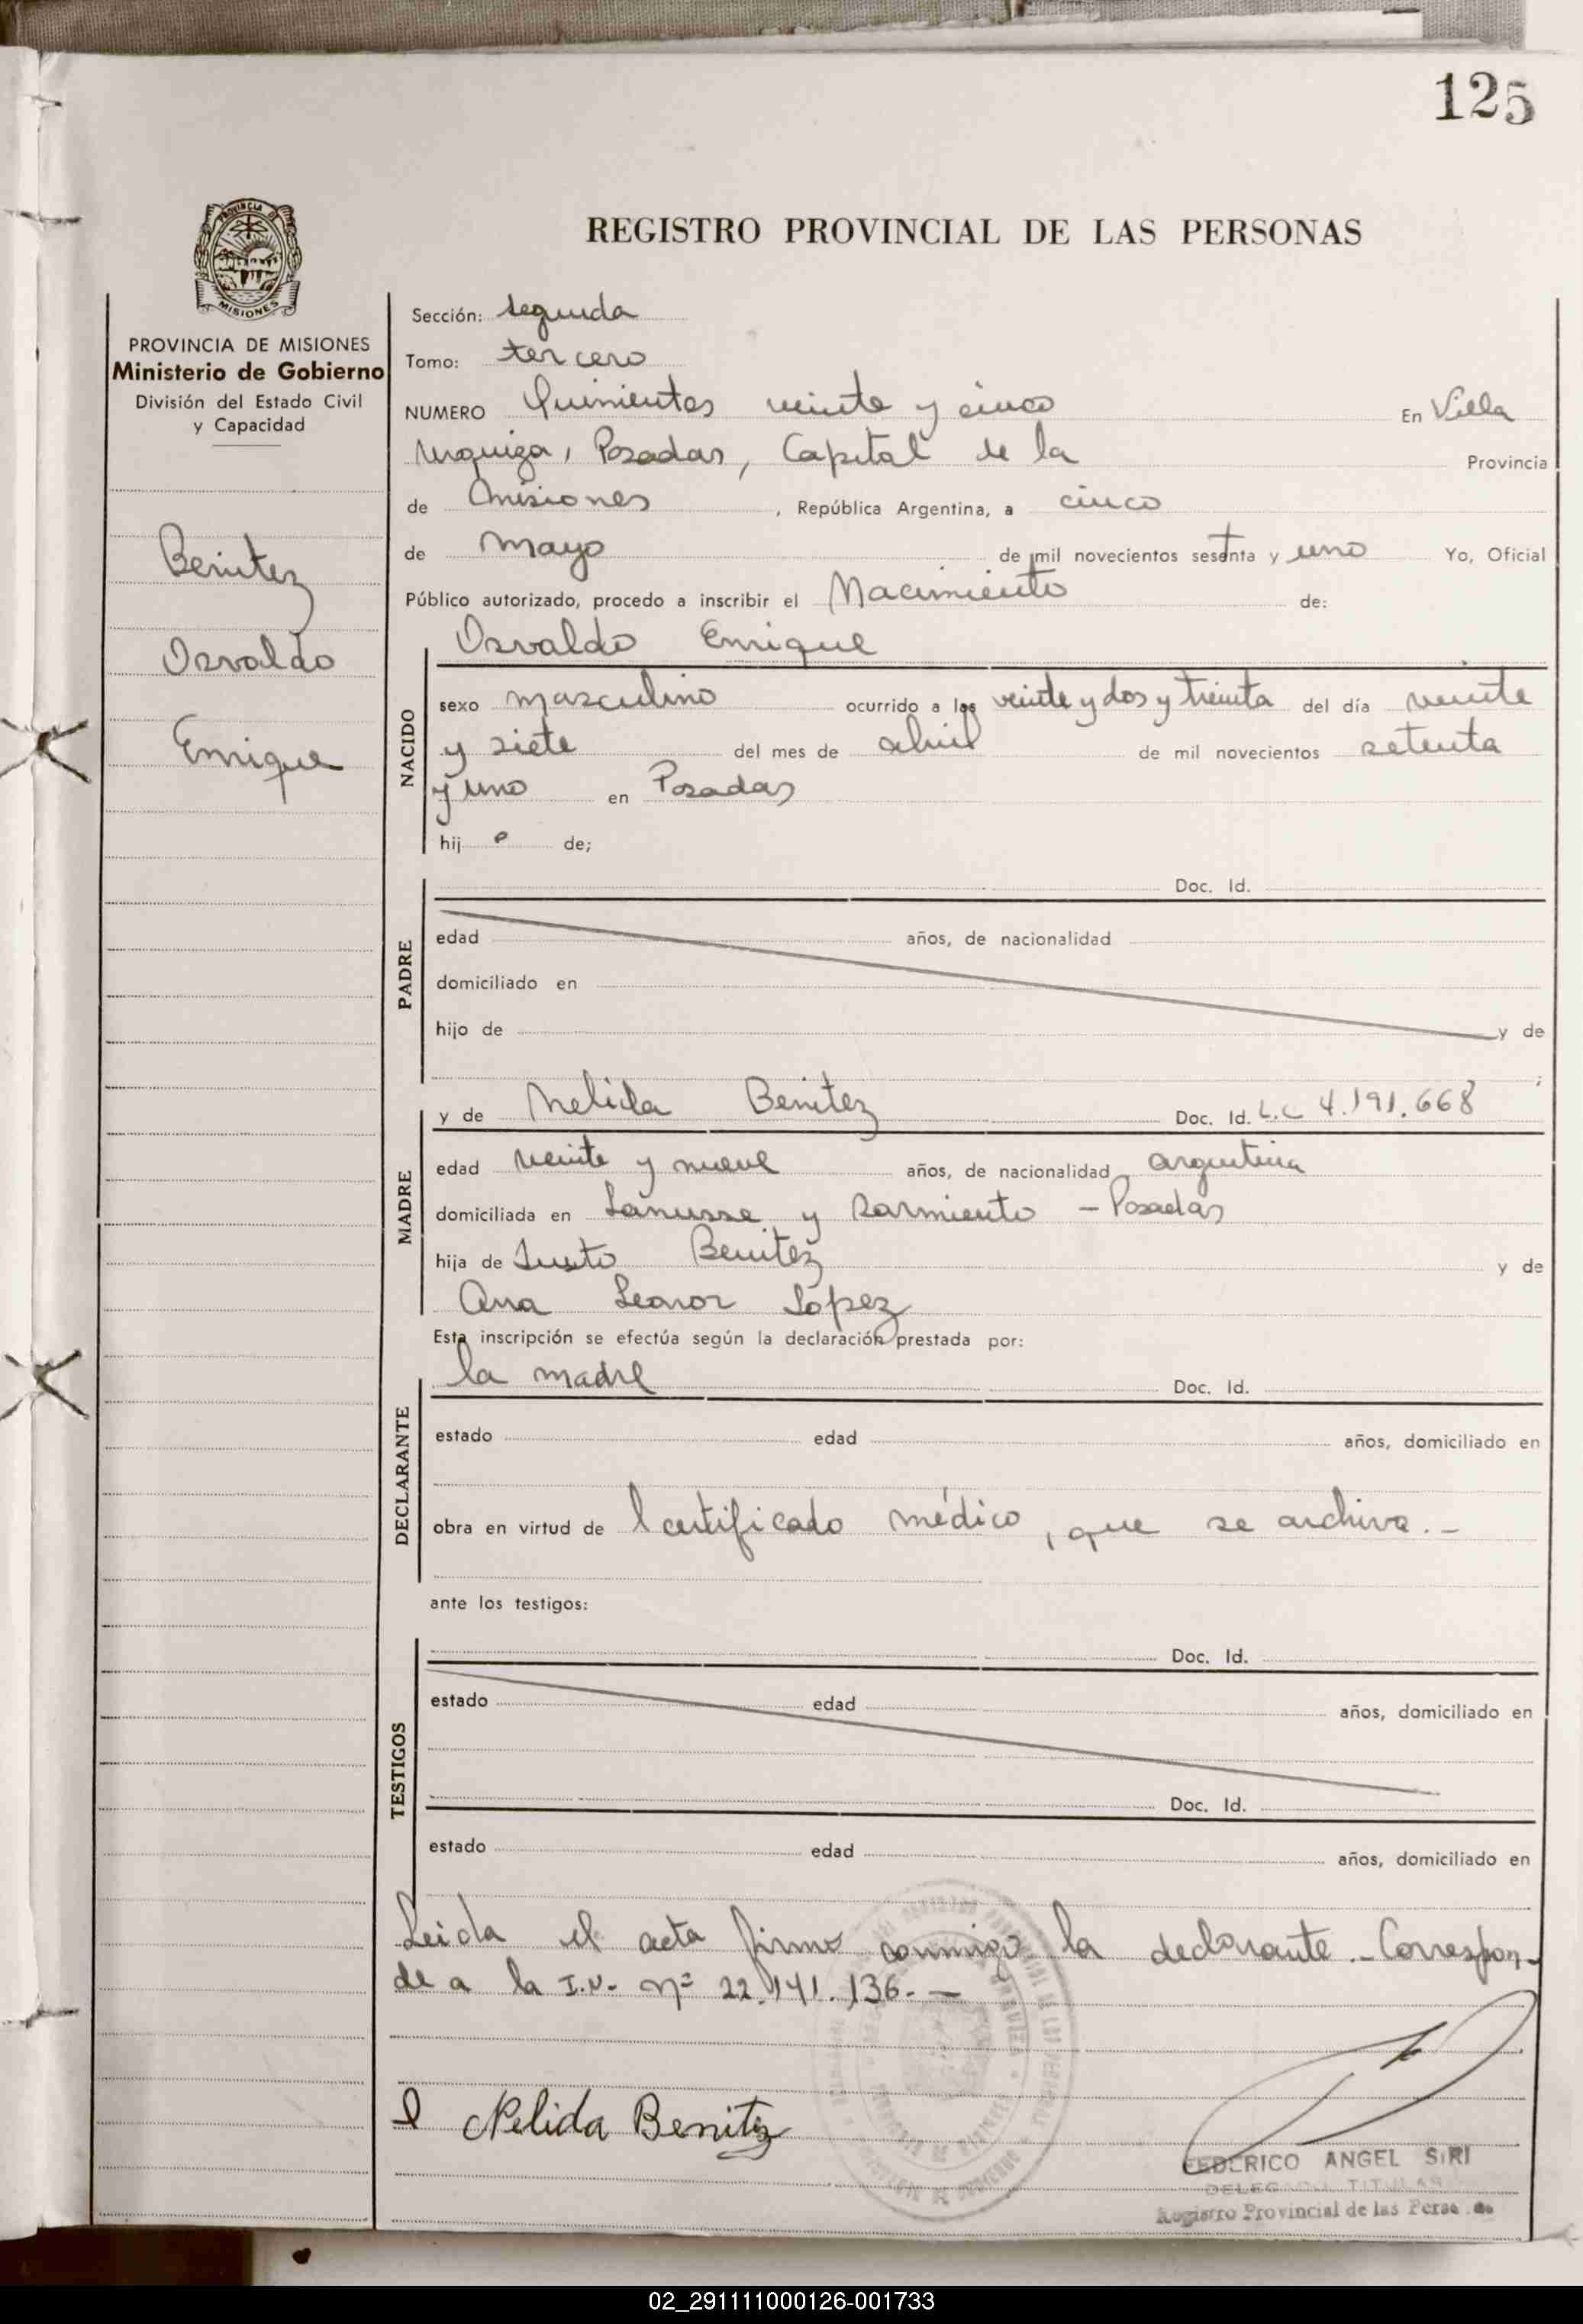 125
REGISTRO PROVINCIAL DE LAS PERSONAS
PROVINCIA DE MISIONES
Ministerio de Gobierno
División del Estado Civil
y Capacidad
Benitez
Osvaldo
Enrique
Sección: segunda
Tomo: tercero
NUMERO Quinientos veinte y cinco En Villa
Urquiza, Posadas, Capital de la Provincia
de Misiones, República Argentina, a cinco
de mayo de mil novecientos setenta y uno Yo, Oficial
Público autorizado, procedo a inscribir el Nacimiento de:
NACIDO
Osvaldo Enrique
sexo masculino ocurrido a las veinte y dos y treinta del día veinte
y siete del mes de abril de mil novecientos setenta
y uno en Posadas
hijo de;
PADRE
Doc. Id.
edad años, de nacionalidad
domiciliado en
hijo de y de
;
MADRE
y de Nelida Benitez Doc. Id. L.C 4.191.668
edad veinte y nueve años, de nacionalidad argentina
domiciliada en Lanusse y Sarmiento - Posadas
hija de Justo Benitez y de
Ana Leonor López
Esta inscripción se efectúa según la declaración prestada por:
DECLARANTE
la madre Doc. Id.
estado edad años, domiciliado en
obra en virtud de l certificado médico, que se archiva.-
ante los testigos:
TESTIGOS
Doc. Id.
estado edad años, domiciliado en
Doc. Id.
estado edad años, domiciliado en
Leida el acta firma conmigo la declarante.- Correspon-
de a la I.N. nº 22.141.136.-
Nelida Benitez
FEDERICO ANGEL SIRI
DELEGADO TITULAR
Registro Provincial de las Perso
02_291111000126-001733